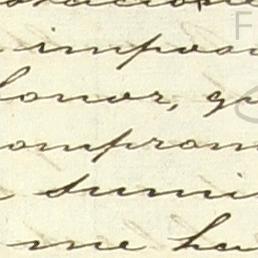 imposi
honor, qu
comprom
sumi
me ha